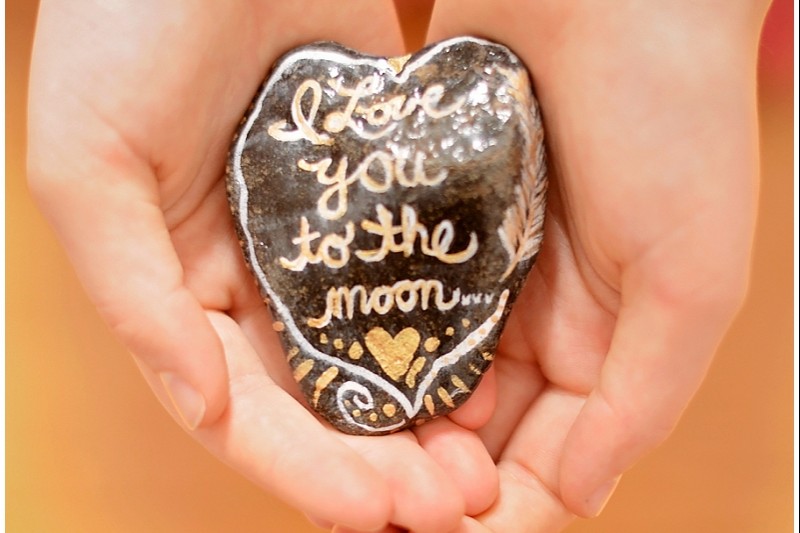 I Love
you
to the
moon...